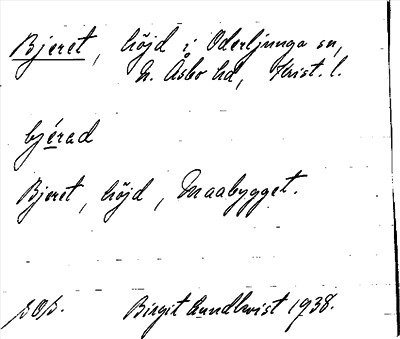 Bjeret, höjd i Oderljunga sn,
N. Åsbo hd, Krist. l.
bjérad
Bjeret, höjd, Maabygget.
Birgit Rundkvist 1938.